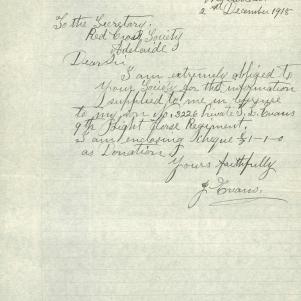 2nd December 1915
To the Secretary.
Red Cross Society
Adelaide
Dear Sir
I am extremely obliged to
Your Society for the information
supplied to me in
to my son No. 3226 Private Evans
9th Light Horse Regiment.
I am enclosing cheque £1-1-0
as Donation
Yours faithfully
J Evans.